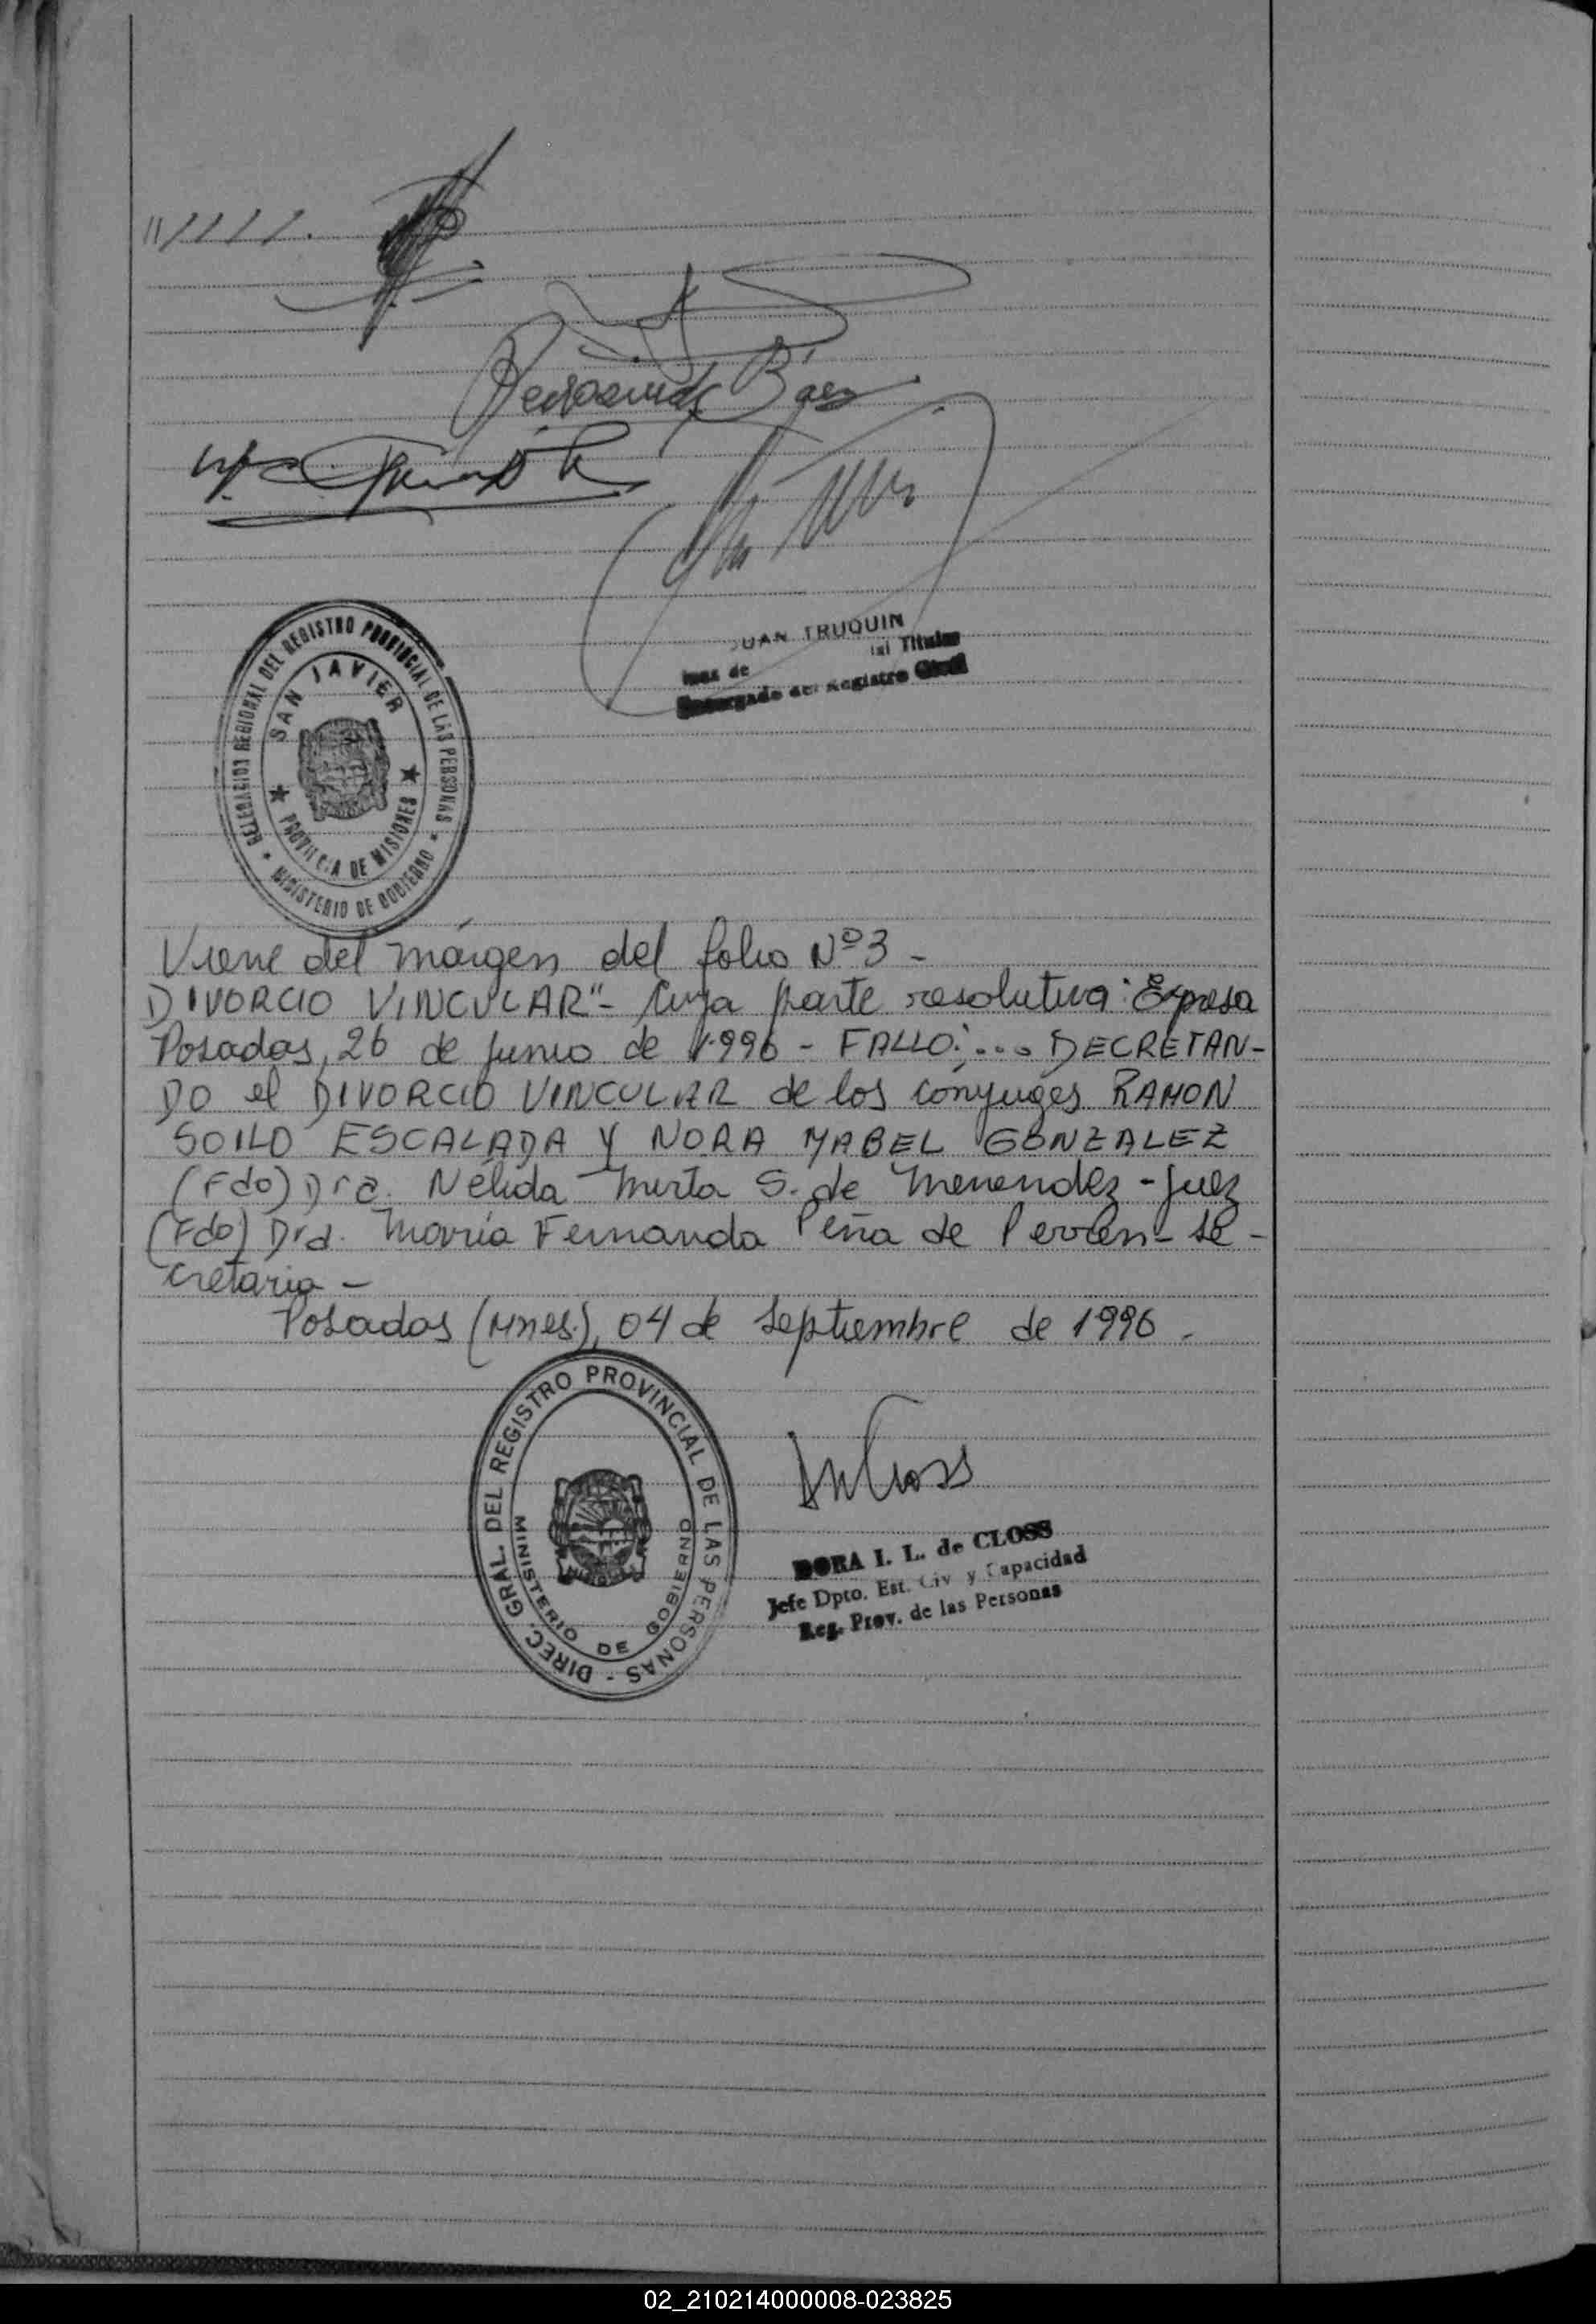 //////.
Báez
JUAN TRUQUIN
Titular
Juez de
Encargado del Registro Civil
DELEGACION REGIONAL DEL REGISTRO PROVINCIAL DE LAS PERSONAS
SAN JAVIER
PROVINCIA DE MISIONES
MINISTERIO DE GOBIERNO
Viene del márgen del folio Nº3 -
DIVORCIO VINCULAR"- Cuya parte resolutiva: Expresa
Posadas, 26 de Junio de 1.996 - FALLO:... DECRETAN-
DO el DIVORCIO VINCULAR de los cónyuges RAMON
SOILO ESCALADA Y NORA MABEL GONZALEZ
(Fdo) Dra. Nélida Mirta S. de Menendez - Juez
(Fdo) Dra. María Fernanda Peña de - Se-
cretaria -
Posadas (Mnes.), 04 de Septiembre de 1996 -
DIREC. GRAL. DEL REGISTRO PROVINCIAL DE LAS PERSONAS -
MINISTERIO DE GOBIERNO
DORA I. L. de CLOSS
Jefe Dpto. Est. Civ y Capacidad
Reg. Prov. de las Personas
02_210214000008-023825